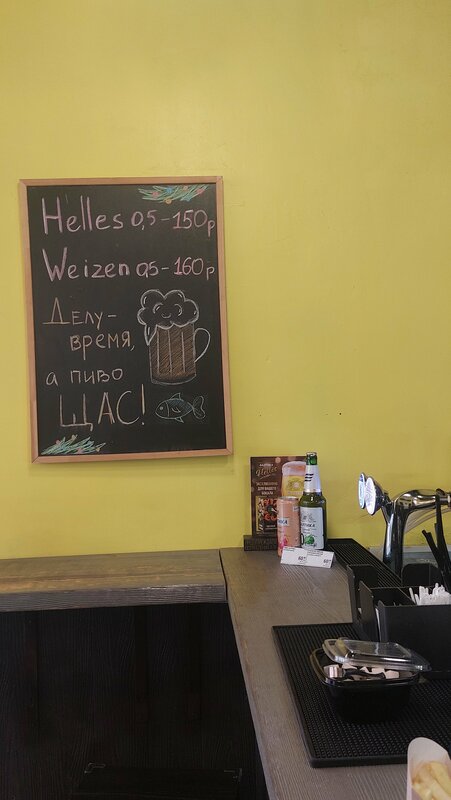 Helles 0,5-150р
Weizen 0,5-160р
Делу-
время,
а пиво
ЩАС!
Helles